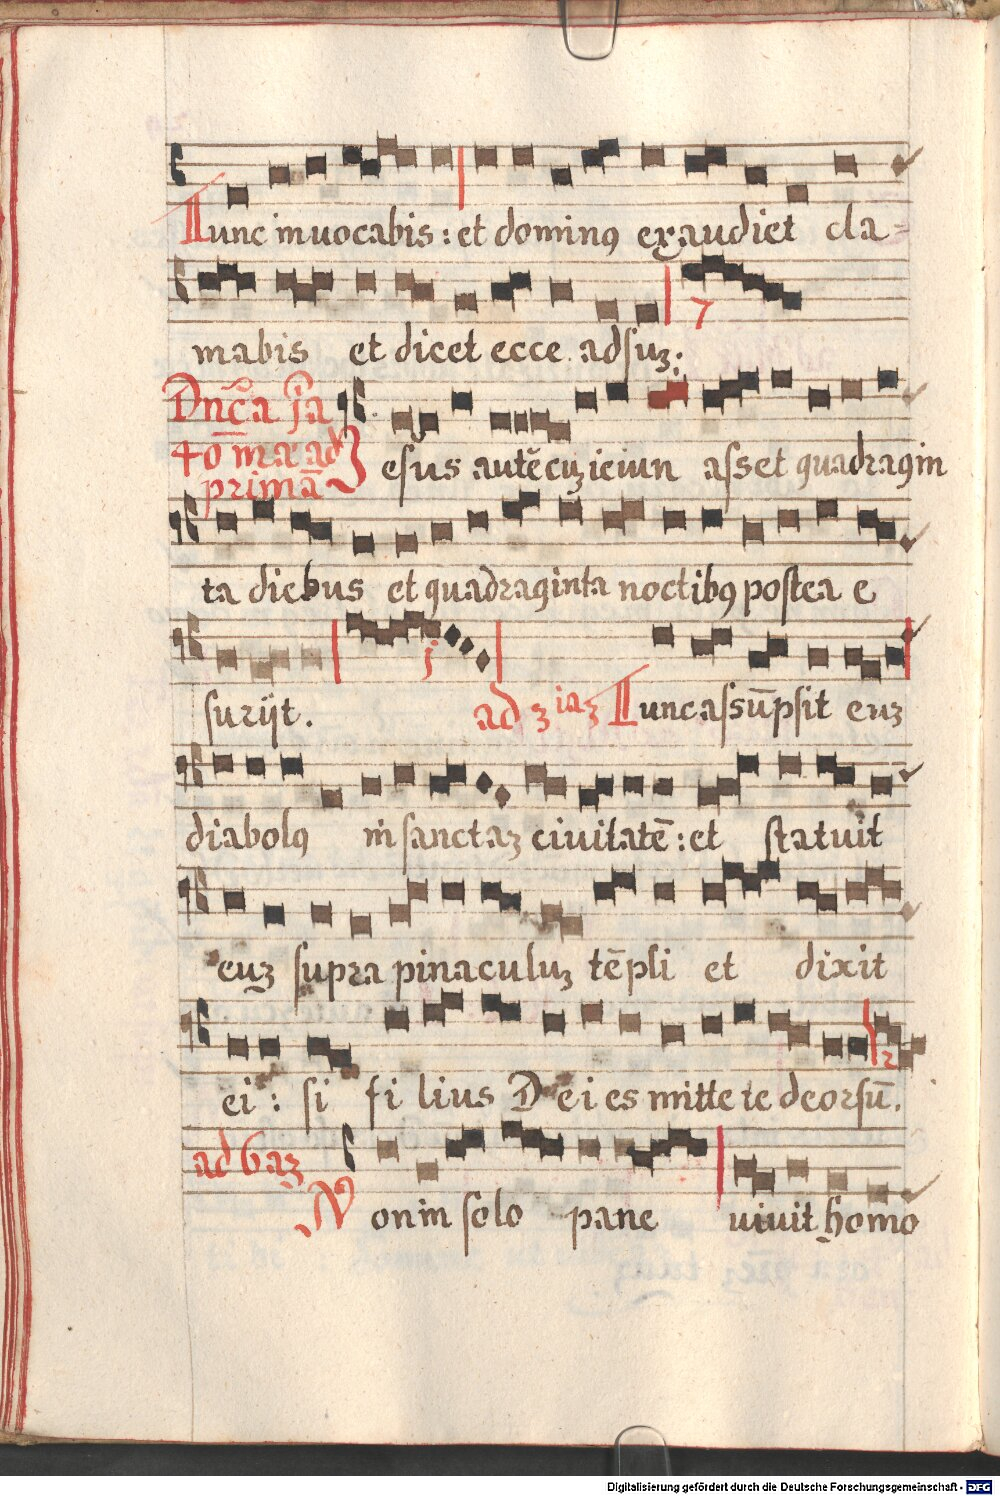 Tunc inuocabis : et dominꝯ exaudiet cla=
mabis et dicet ecce adsuꝫ :
7
Dn̄ca j̄a
4o̅ma ad
primā
Jesus autē cuꝫ ieiun assset quadragin
ta diebus et quadraginta noctibꝯ postea e
suriit .
j
ad 3iaꝫ Tunc assūpsit euꝫ
diabolꝯ in sanctaꝫ ciuitatē : et statuit
euꝫ supra pinaculuꝫ tēpli et dixit
ei : si filius Dei es mitte te deorsū .
2
ad 6aꝫ
Non in solo pane uiuit homo
Digitalisierung gefördert durch die Deutsche Forschungsgemeinschaft - DFG